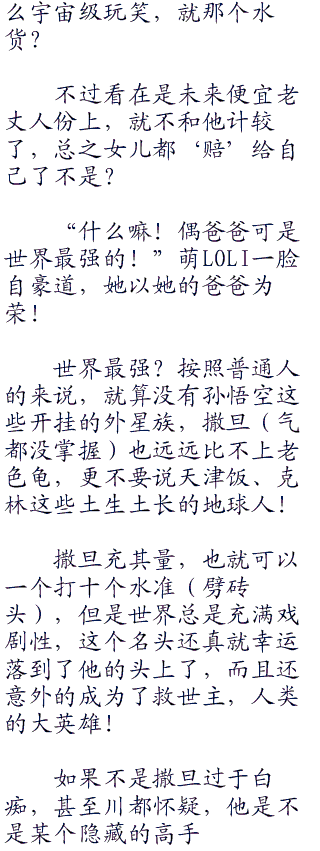 么宇宙级玩笑，就那个水
货？
不过看在是未来便宜老
丈人份上，就不和他计较
了，总之女儿都‘赔’给自
己了不是？
“什么嘛！偶爸爸可是
世界最强的！”萌LOLI一脸
自豪道，她以她的爸爸为
荣！
世界最强？按照普通人
的来说，就算没有孙悟空这
些开挂的外星族，撒旦（气
都没掌握）也远远比不上老
色龟，更不要说天津饭、克
林这些土生土长的地球人！
撒旦充其量，也就可以
一个打十个水准（劈砖
头），但是世界总是充满戏
剧性，这个名头还真就幸运
落到了他的头上了，而且还
意外的成为了救世主，人类
的大英雄！
如果不是撒旦过于白
痴，甚至川都怀疑，他是不
是某个隐藏的高手